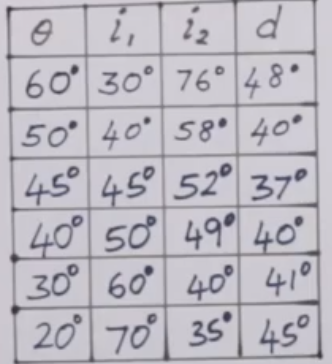 θ i₁ i₂ d
60° 30° 76° 48°
50° 40° 58° 40°
45° 45° 52° 37°
40° 50° 49° 40°
30° 60° 40° 41°
20° 70° 35° 45°